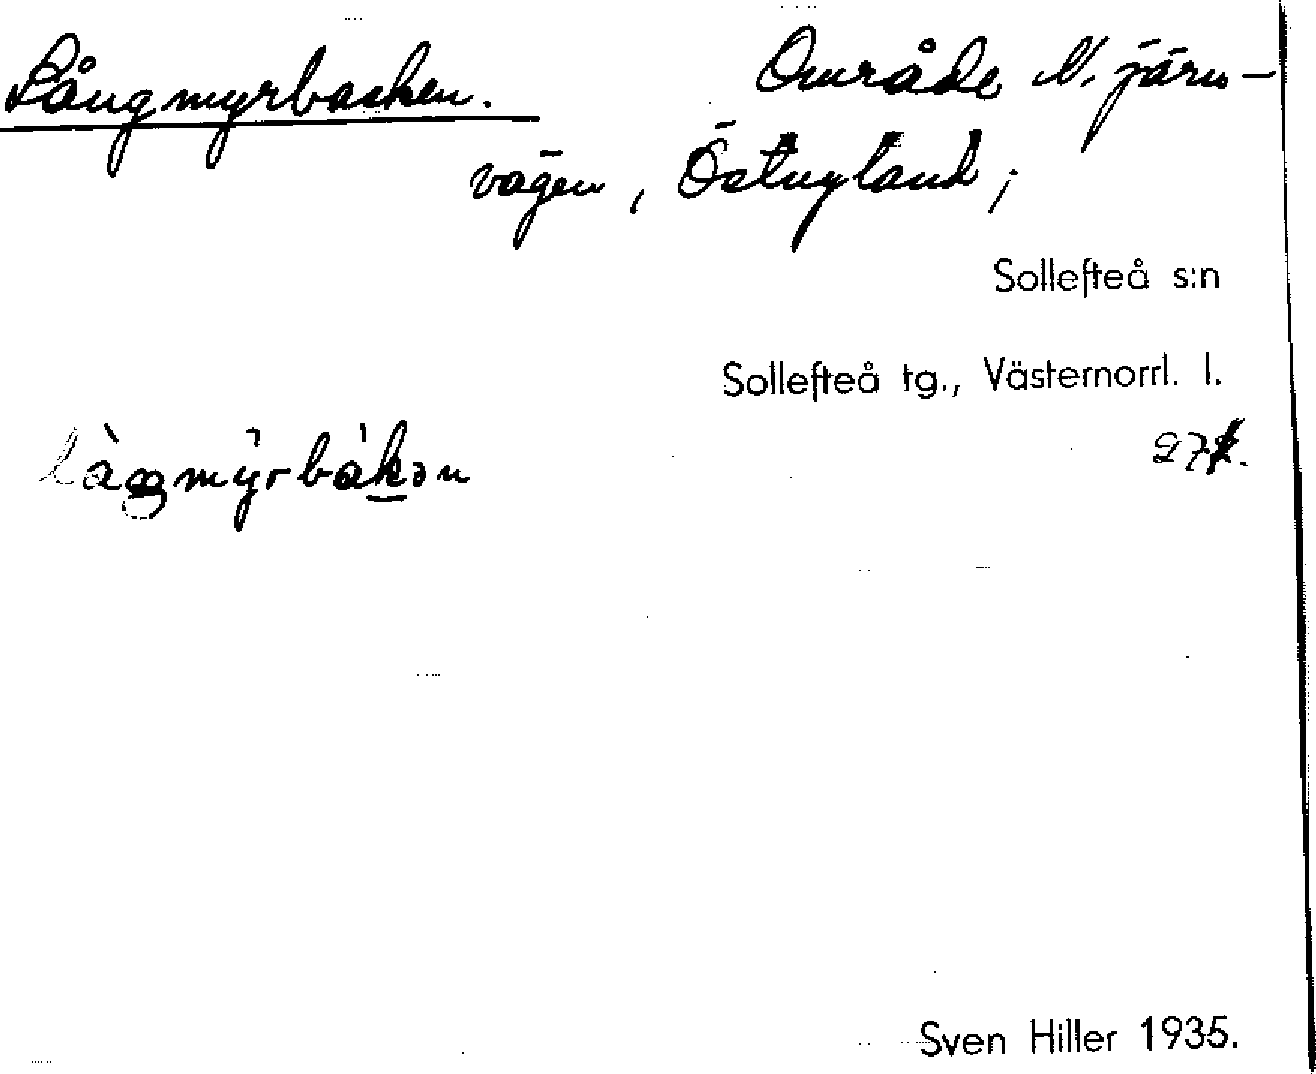 Långmyrbacken. Område N. järn-
vägen, Östnyland;
Sollefteå s:n
Sollefteå tg., Västernorrl. l.
Sven Hiller 1935.